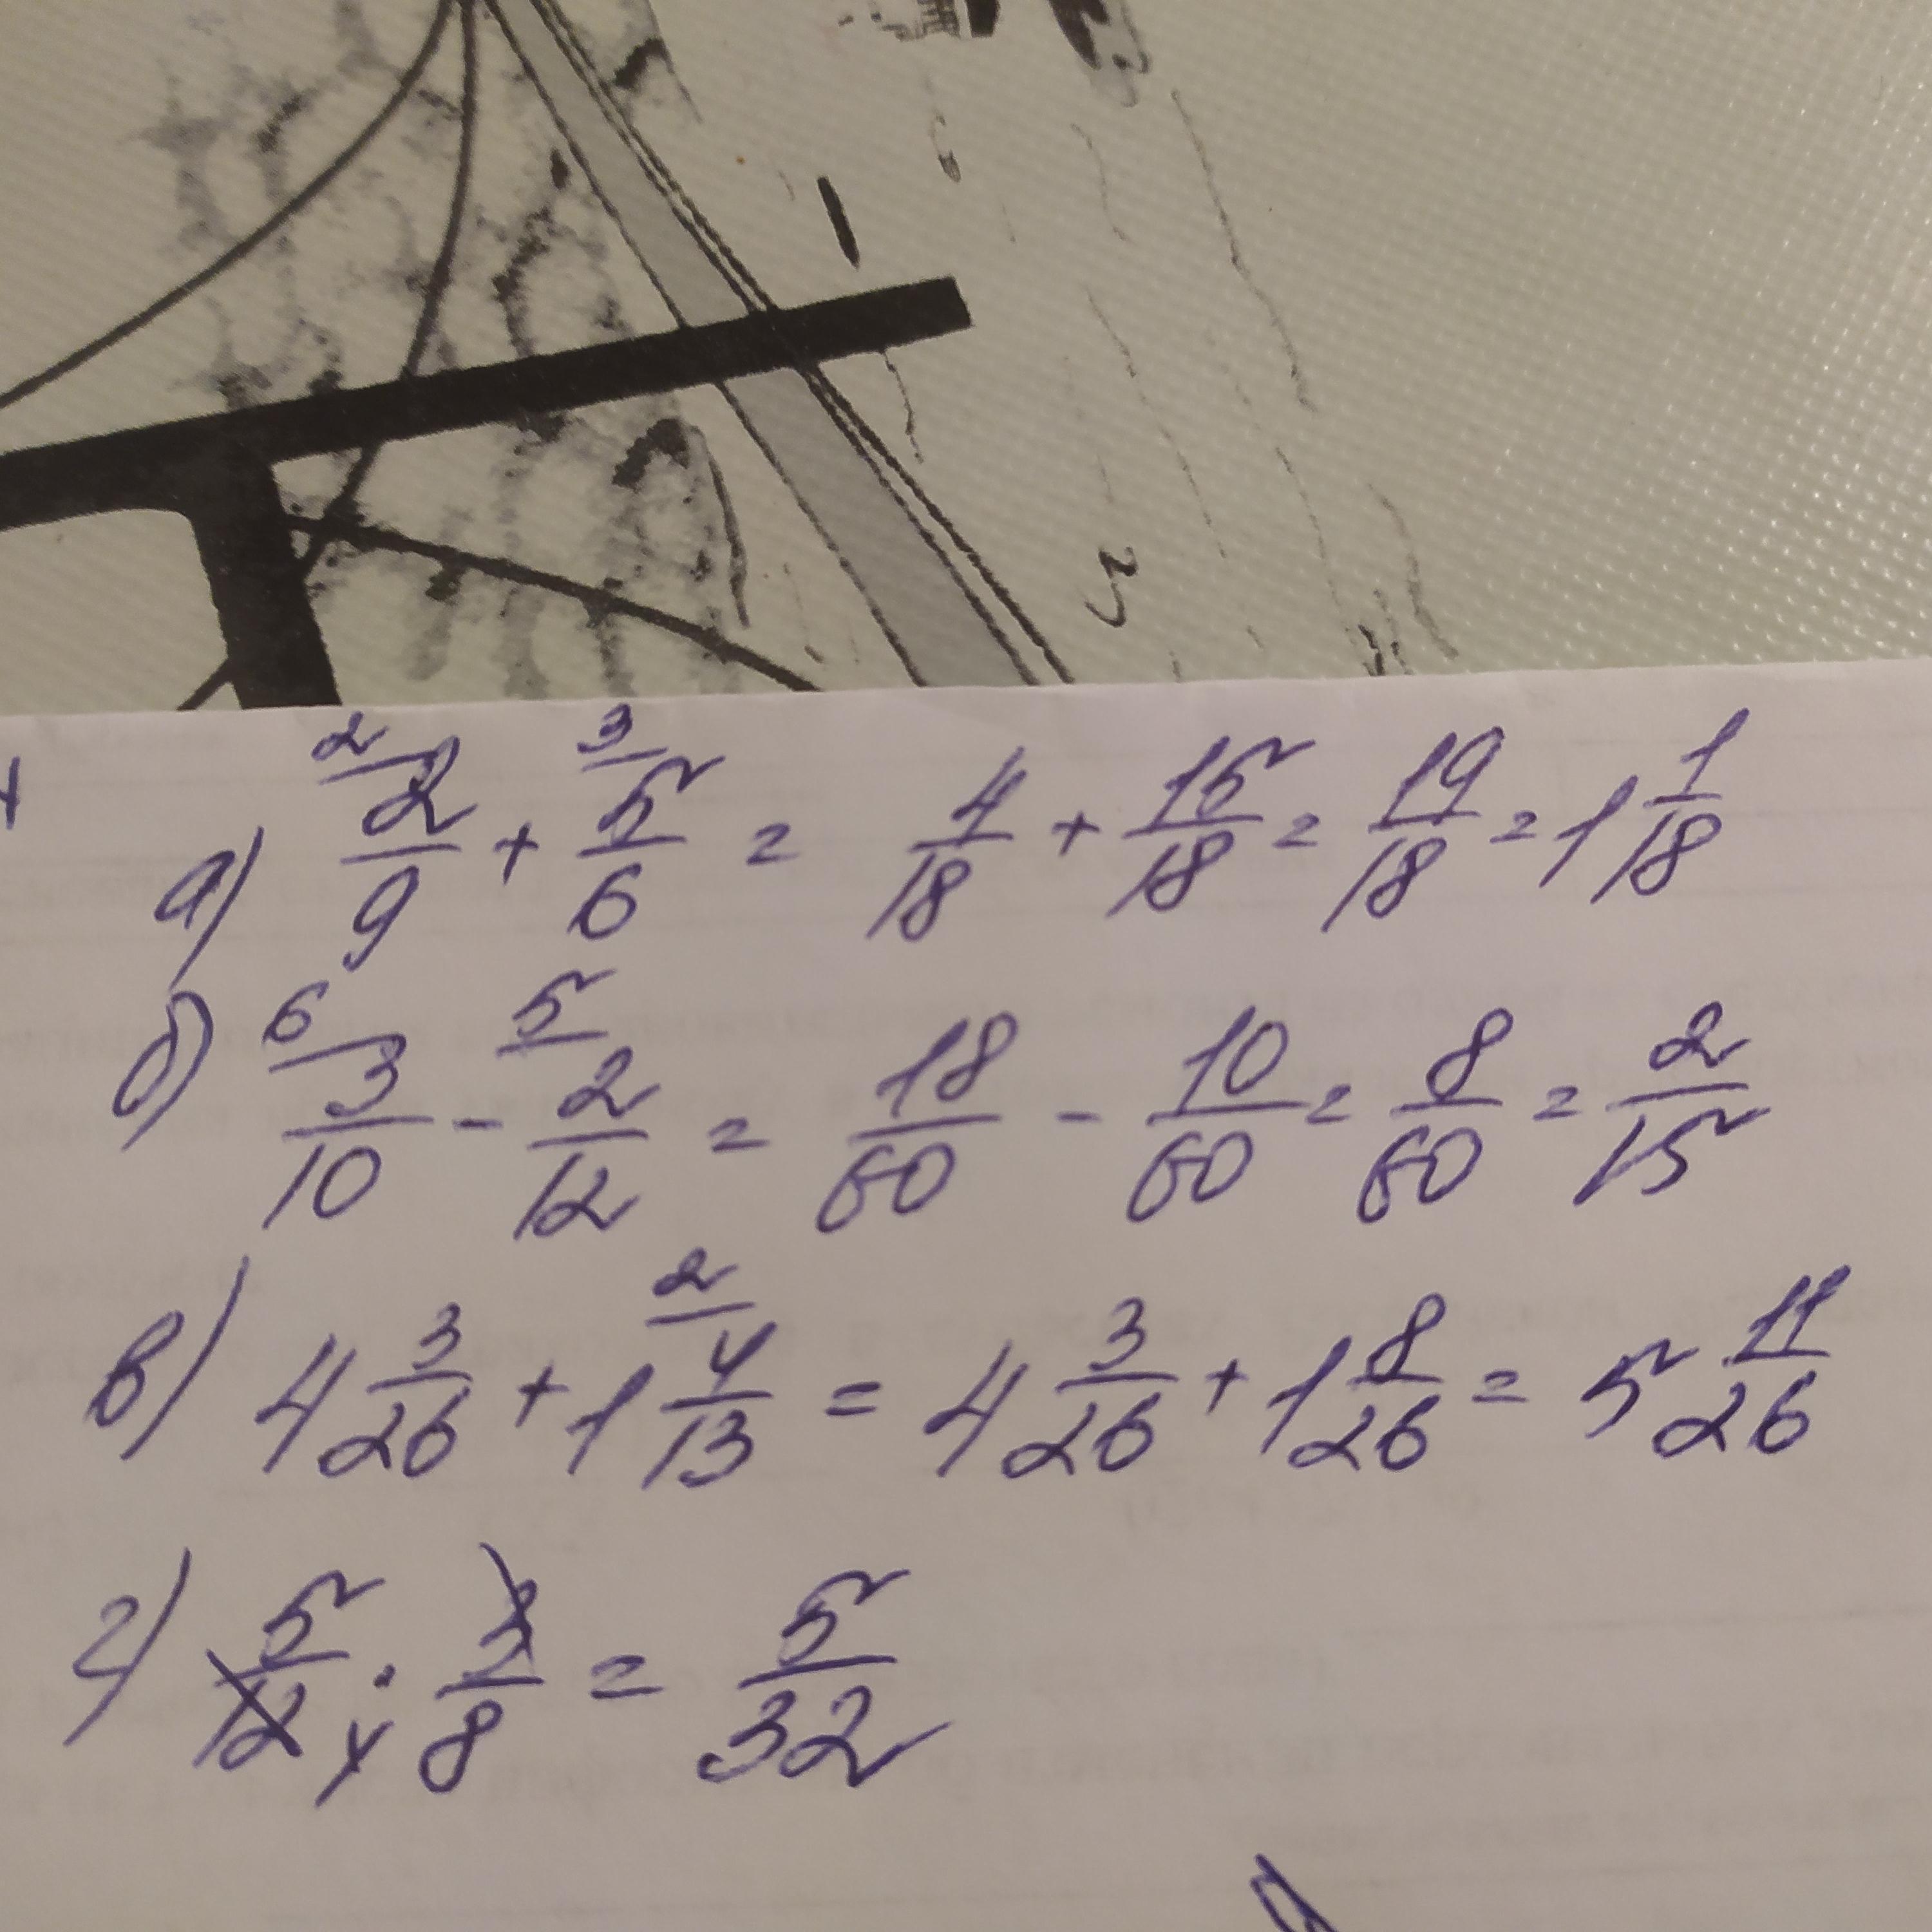 а) 2/ 2/9 + 3/ 5/6 = 4/18 + 15/18 = 19/18 = 1 1/18
б) 6/ 3/10 - 5/ 2/12 = 18/60 - 10/60 = 8/60 = 2/15
в) 4 3/26 + 1 2/ 4/13 = 4 3/26 + 1 8/26 = 5 11/26
г) 5/12 4 · 3/8 = 5/32